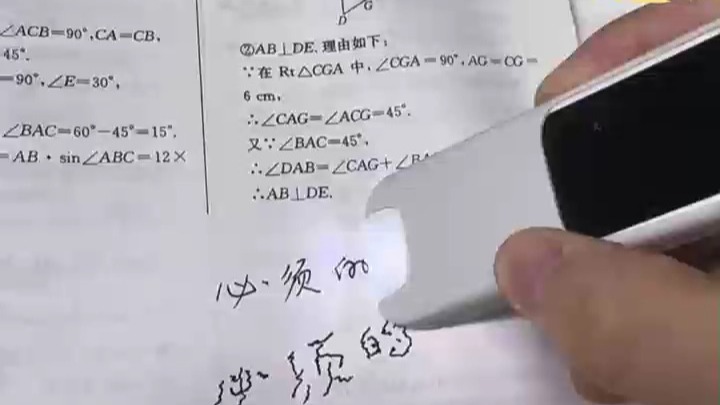 ∠ACB=90°,CA=CB,
45°.
=90°,∠E=30°,
∠BAC=60°-45°=15°.
=AB·sin∠ABC=12×
G
D
②AB⊥DE.理由如下:
∵在Rt△CGA中,∠CGA=90°,AG=CG=
6 cm,
∴∠CAG=∠ACG=45°.
又∵∠BAC=45°,
∴∠DAB=∠CAG+∠BA
∴AB⊥DE.
必须的
必须的